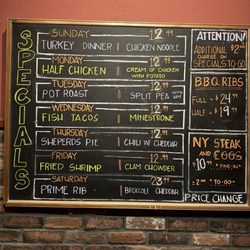 SPECIALS
SUNDAY 12.99
TURKEY DINNER | CHICKEN NOODLE
MONDAY 12.99
HALF CHICKEN | CREAM OF CHICKEN WITH POTATO
TUESDAY 12.99
POT ROAST | SPLIT PEA
WEDNESDAY 12.99
FISH TACOS | MINESTRONE
THURSDAY 12.99
SHEPERDS PIE | CHILI W/ CHEDDAR
FRIDAY 12.99
FRIED SHRIMP | CLAM CHOWDER
SATURDAY 23.99
PRIME RIB | BROCCOLI CHEDDAR
ATTENTION!
ADDITIONAL $2.00
CHARGE ON
SPECIALS TO GO
B.B.Q. RIBS
FULL $24.99
HALF $14.99
NY STEAK
AND EGGS
$10.99 DINE-IN
$2.00 TO-GO
PRICE CHANGE